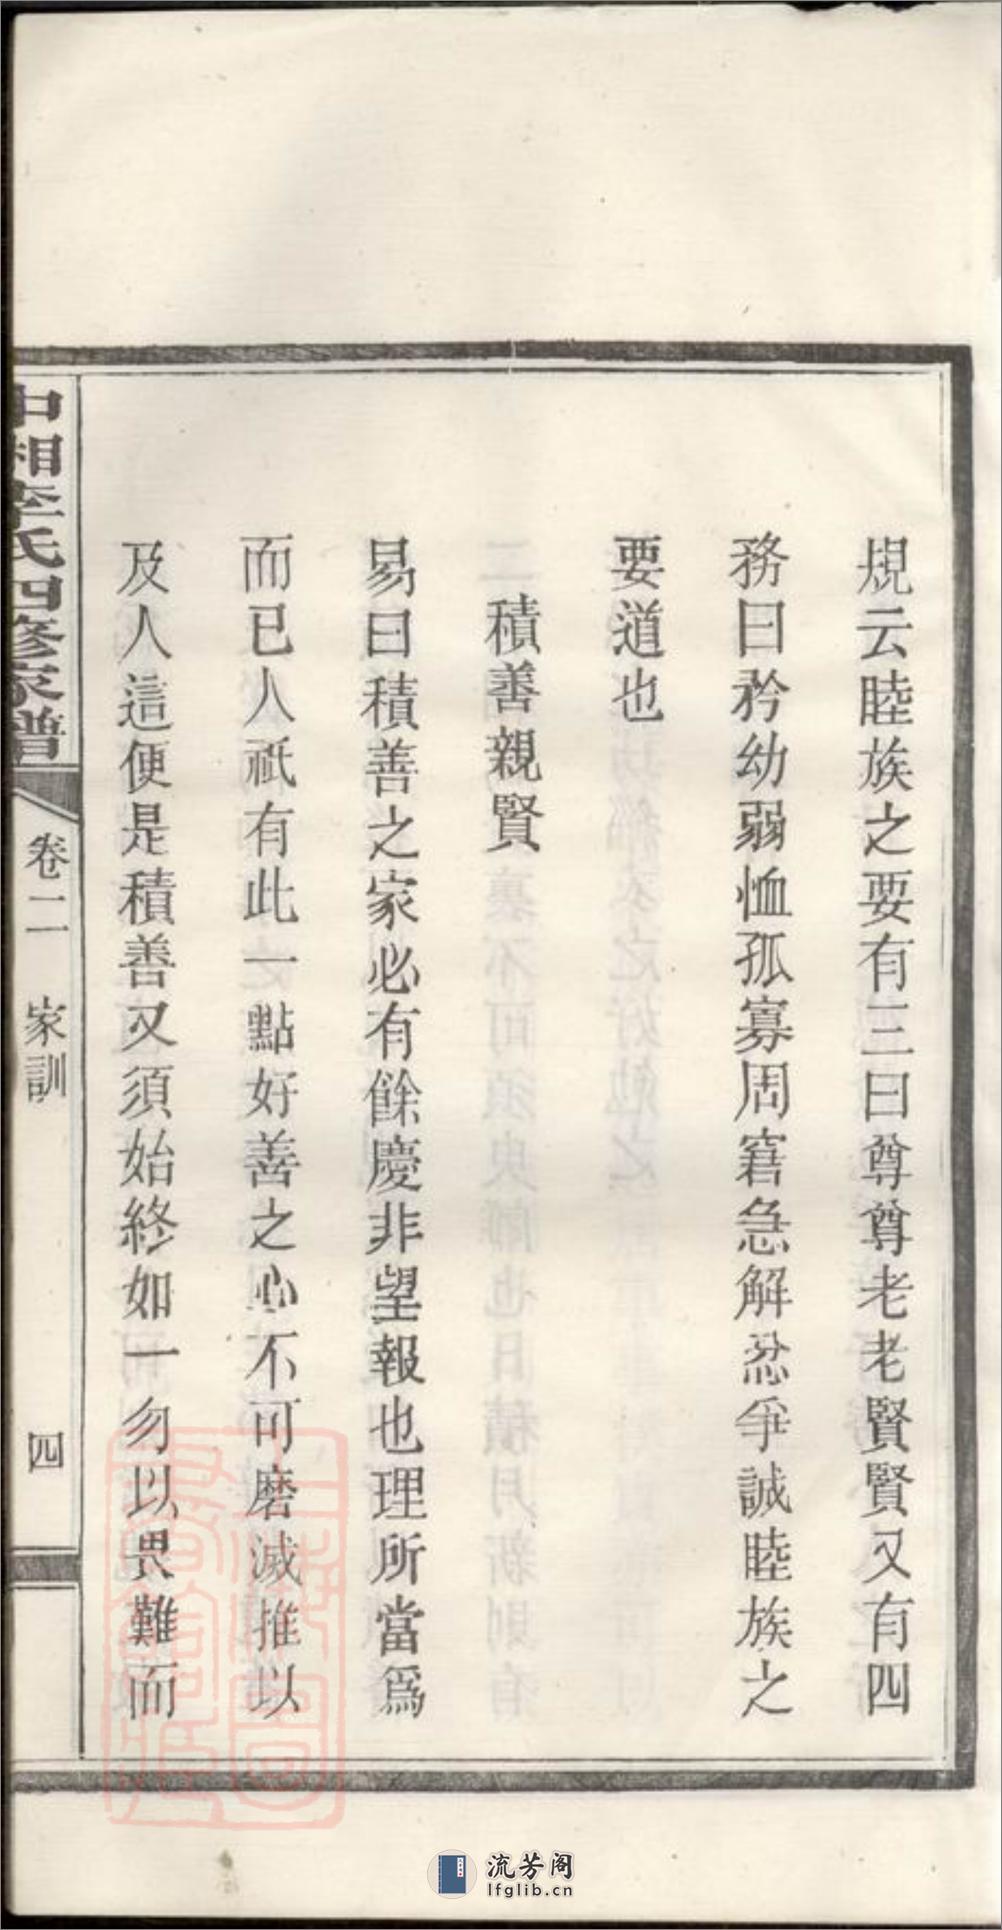 規云睦族之要有三曰尊尊老老賢賢又有四
務曰矜幼弱恤孤寡周窘急解忿爭誠睦族之
要道也
二積善親賢
易曰積善之家必有餘慶非望報也理所當爲
而已人祇有此一點好善之心不可磨滅推以
及人這便是積善又須始終如一勿以畏難而
中湘李氏四修家譜
卷二 家訓
四
上海圖書館藏
流芳阁
lfglib.cn